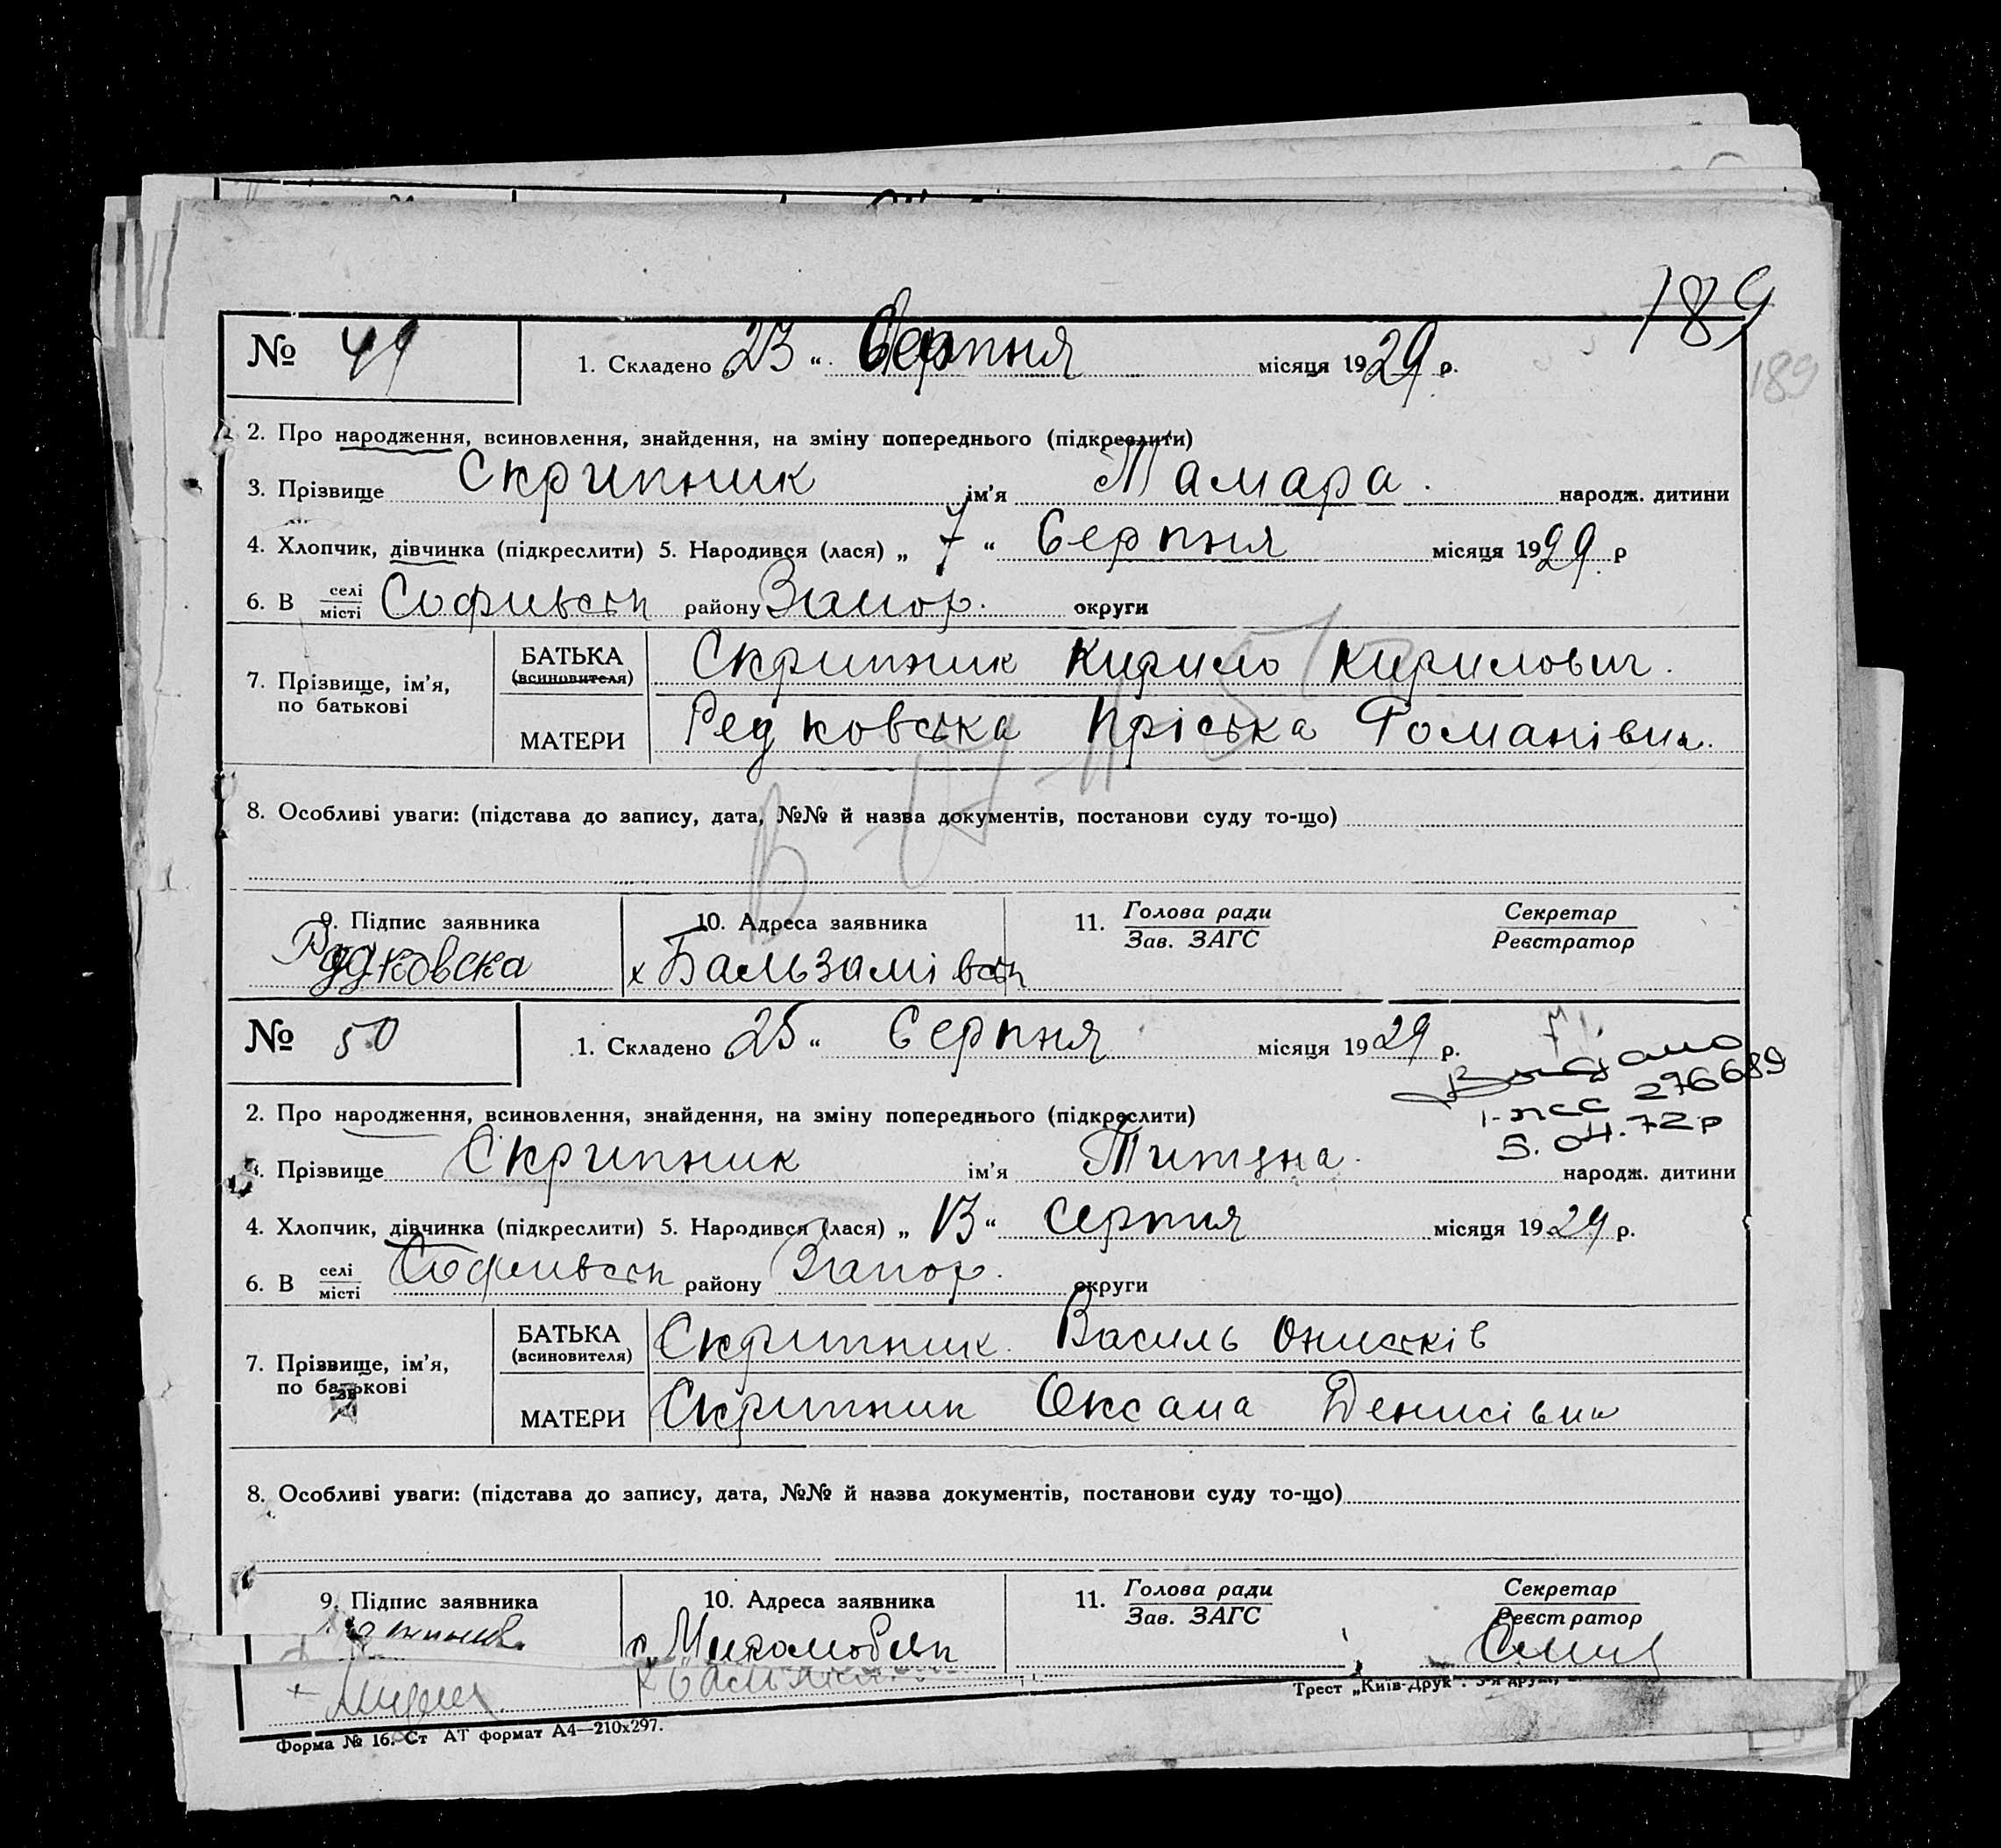 189
189
№ 49
1. Складено „23“ Серпня місяця 1929 р.
2. Про народження, всиновлення, знайдення, на зміну попереднього (підкреслити)
3. Прізвище Скрипник ім'я Тамара. народж. дитини
4. Хлопчик, дівчинка (підкреслити) 5. Народився (лася) „7“ Серпня місяця 1929 р
6. В селі місті Софивськ району Запор. округи
7. Прізвище, ім'я, по батькові
БАТЬКА (всиновителя) Скрипник Кирило Кирилович.
МАТЕРИ Редковська Пріська Романівна.
8. Особливі уваги: (підстава до запису, дата, №№ й назва документів, постанови суду то-що)
9. Підпис заявника 10. Адреса заявника 11. Голова ради Зав. ЗАГС Секретар Реєстратор
Редковска х Бальзамівськ
№ 50
1. Складено „25“ Серпня місяця 1929 р.
Видано
276689
5.04.72р
2. Про народження, всиновлення, знайдення, на зміну попереднього (підкреслити)
3. Прізвище Скрипник ім'я народж. дитини
4. Хлопчик, дівчинка (підкреслити) 5. Народився (лася) „13“ Серпня місяця 1929 р.
6. В селі місті Софивськ району Запор. округи
7. Прізвище, ім'я, по батькові
БАТЬКА (всиновителя) Скрипник Василь Онисків
МАТЕРИ Скрипник Оксана Денисівна
8. Особливі уваги: (підстава до запису, дата, №№ й назва документів, постанови суду то-що)
9. Підпис заявника 10. Адреса заявника 11. Голова ради Зав. ЗАГС Секретар Реєстратор
Трест „Київ-Друк“.
Форма № 16. Ст АТ формат А4—210х297.